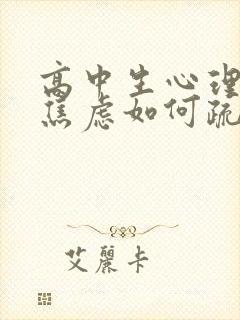 高中生心理
焦虑如何疏
艾麗卡